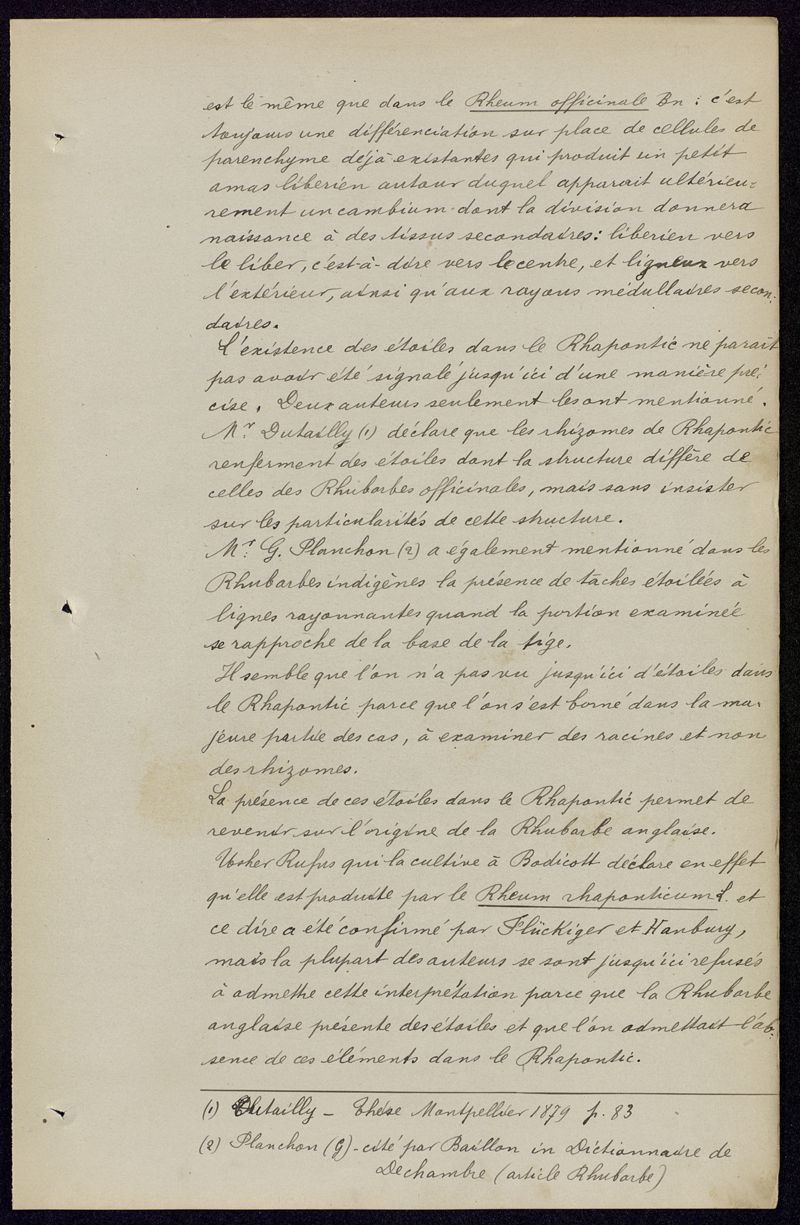 est le même que dans le Rheum officinale Bn : c'est
toujours une différenciation sur place de cellules de
parenchyme déjà existantes qui produit un petit
amas libérien autour duquel apparait ultérieu=
rement un cambium dont la division donnera
naissance à des tissus secondaires : libérien vers
le liber, c'est-à-dire vers le centre, et ligneux vers
l'extérieur, ainsi qu'aux rayons médullaires secon-
daires.
L'existence des étoiles dans le Rhapontic ne parait
pas avoir été signalé jusqu'ici d'une manière pré-
cise. Deux auteurs seulement les ont mentionné.
Mr Dutailly (1) déclare que les rhizomes de Rhapontic
renferment des étoiles dont la structure diffère de
celles des Rhubarbes officinales, mais sans insister
sur les particularités de cette structure.
Mr. G. Planchon (2) a également mentionné dans les
Rhubarbes indigènes la présence de taches étoilées à
lignes rayonnantes quand la portion examinée
se rapproche de la base de la tige.
Il semble que l'on n'a pas vu jusqu'ici d'étoiles dans
le Rhapontic parce que l'on s'est borné dans la ma-
jeure partie des cas, à examiner des racines et non
des rhizomes.
La présence de ces étoiles dans le Rhapontic permet de
revenir sur l'origine de la Rhubarbe anglaise.
Usher Rufus qui la cultive à Bodicott déclare en effet
qu'elle est produite par le Rheum rhaponticum L. et
ce dire a été confirmé par Flückiger et Hanbury,
mais la plupart des auteurs se sont jusqu'ici refusés
à admettre cette interprétation parce que la Rhubarbe
anglaise présente des étoiles et que l'on admettait l'ab-
sence de ces éléments dans le Rhapontic.
(1) Dutailly - Thèse Montpellier 1879 p. 83
(2) Planchon (G) - cité par Baillon in Dictionnaire de
Dechambre (article Rhubarbe)